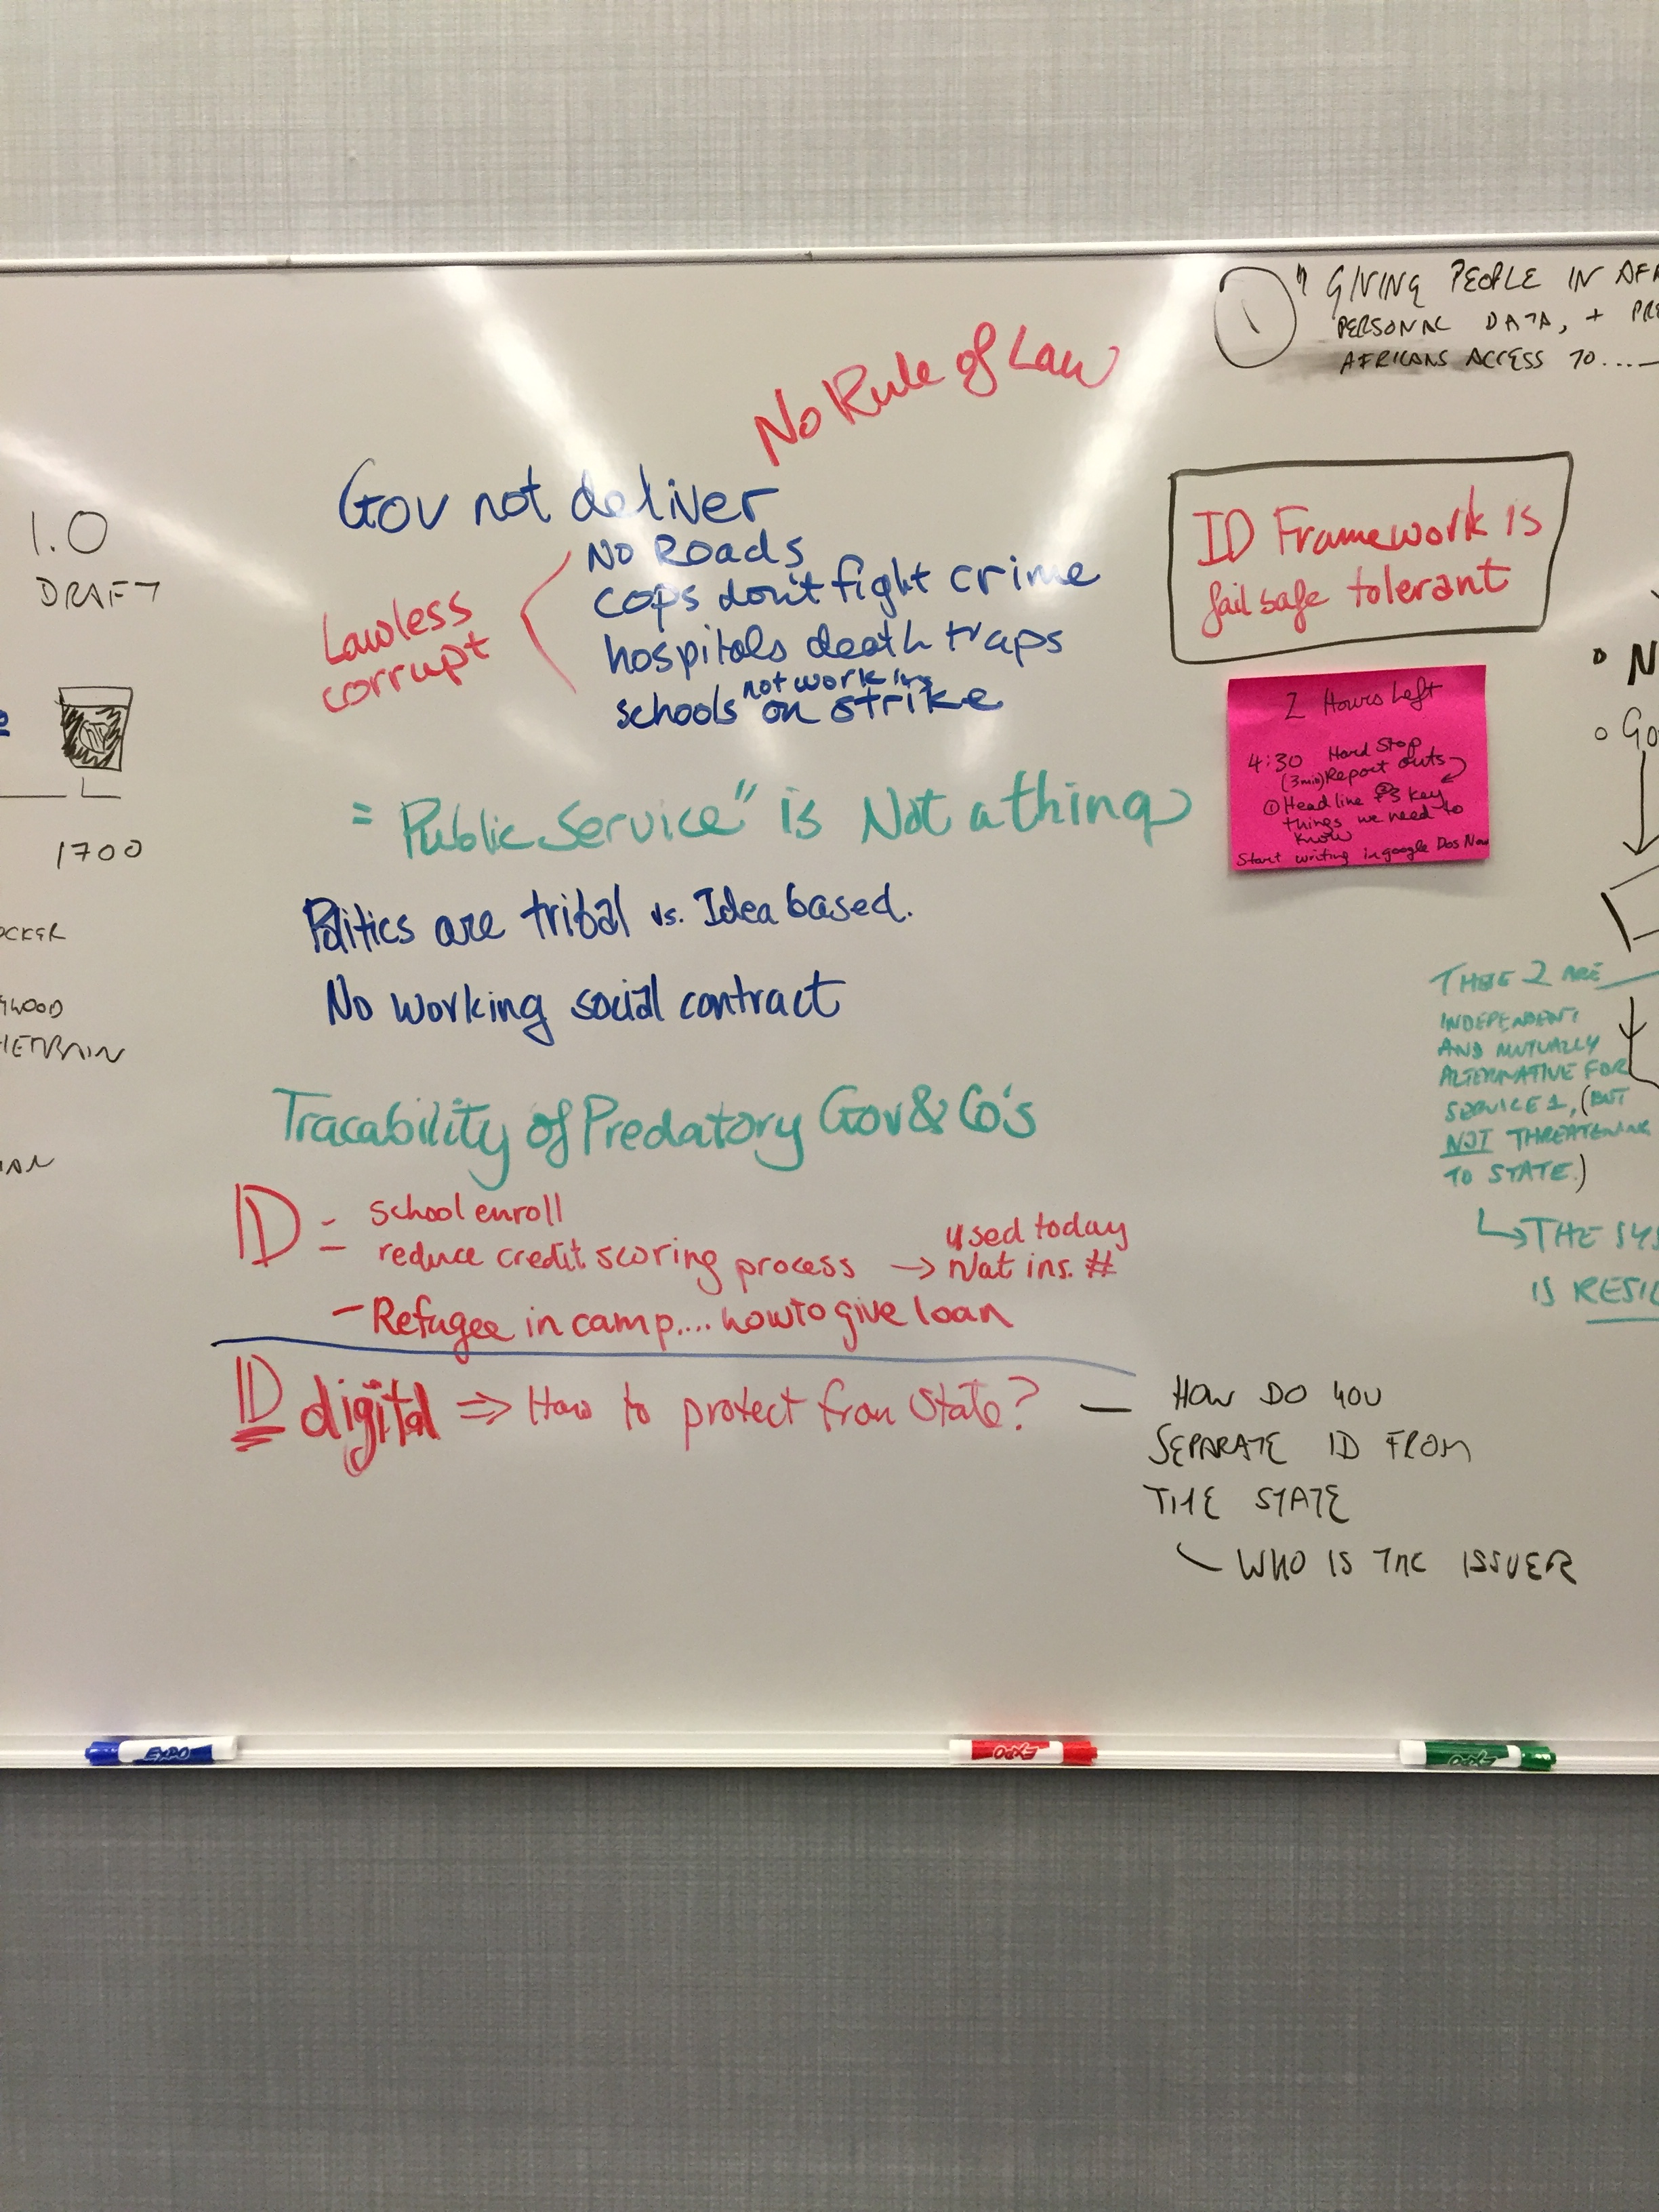 1.0
DRAFT
1700
OCKER
WOOD
AN
No Rule of Law
Gov not deliver
Lawless
corrupt
No Roads
cops don't fight crime
hospitals death traps
not working
schools on strike
"Public Service" is Not a thing
Politics are tribal vs. Idea based.
No working social contract
Tracability of Predatory Gov & Co's
ID - school enroll
- reduce credit scoring process → used today
Nat ins. #
- Refugee in camp.... how to give loan
ID digital ⇒ How to protect from State? —
HOW DO YOU
SEPARATE ID FROM
THE STATE
WHO IS THE ISSUER
1 " GIVING PEOPLE IN AFR
PERSONAL DATA, + PR
AFRICANS ACCESS TO....
ID Framework is
fail safe tolerant
2 Hours Left
4:30 Hard Stop
(3min) Report outs
① Headline ② 3 key
things we need to
know
Start writing in google Dos Now
• N
○ Go
THESE 2 ARE
INDEPENDENT
AND MUTUALLY
ALTERNATIVE FOR
SERVICE 1, (BUT
NOT THREATENING
TO STATE.)
↳ THE SYS
IS RESIL
EXPO
EXPO
EXPO